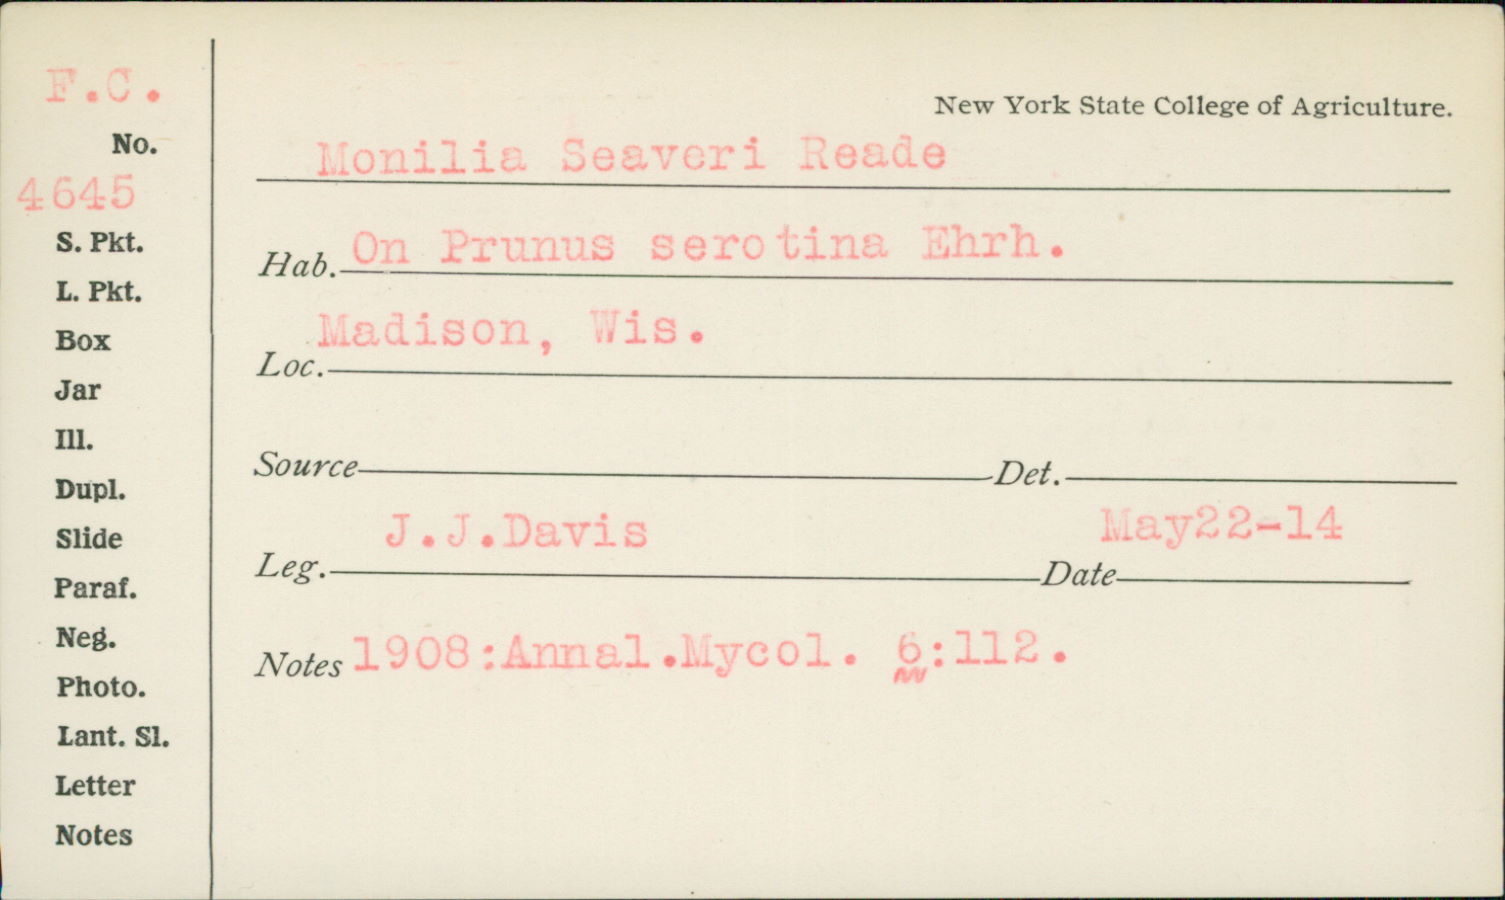 F.C.
No.
4645
S. Pkt.
L. Pkt.
Box
Jar
Ill.
Dupl.
Slide
Paraf.
Neg.
Photo.
Lant. Sl.
Letter
Notes
New York State College of Agriculture.
Monilia Seaveri Reade
Hab. On Prunus serotina Ehrh.
Loc. Madison, Wis.
Source Det.
Leg. J.J.Davis Date May22-14
Notes 1908:Annal.Mycol. 6:112.